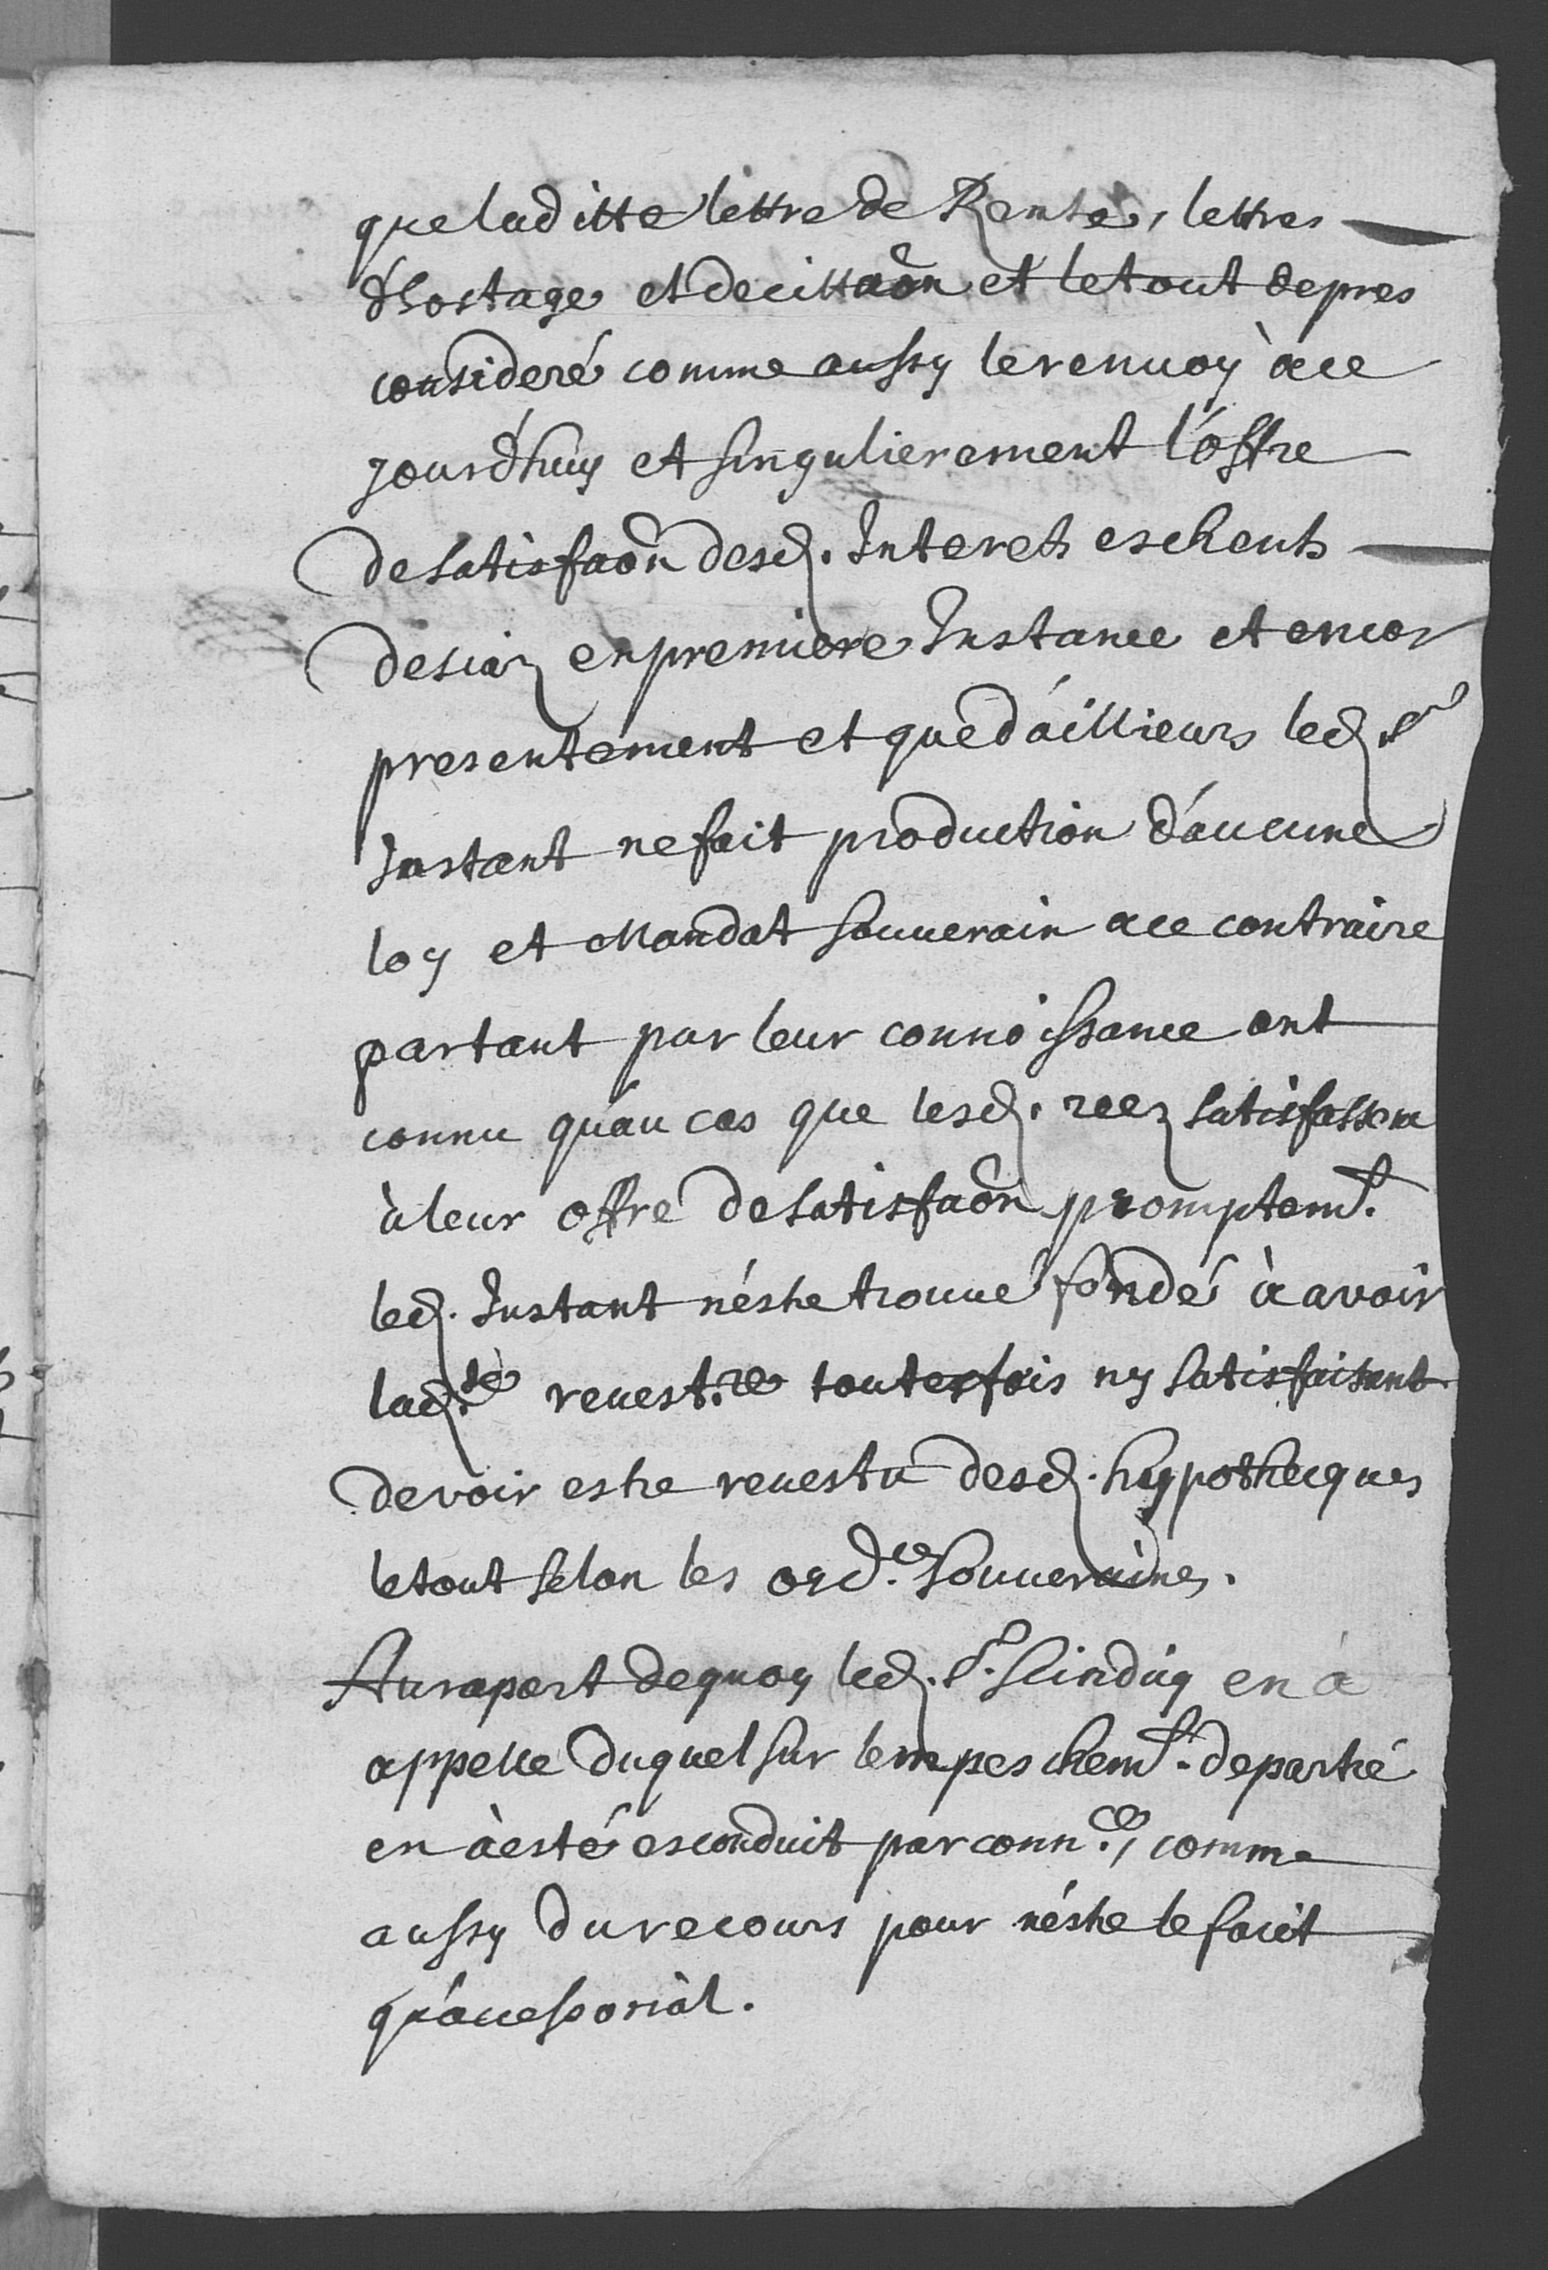 que laditte lettre de Rente, lettres
d'hostage et de cittaôn et le tout de pres
consideré comme aussy le renuoy à ce
jourd'huy et singulierement l'offre
de satisfaôn desd. Interets escheuts
desiaz en premiere Instance et encor
presentement et que d'aillieurs led. Sr
Instant ne fait production d'aucune
loy et Mandat souuerain a ce contraire
partant par leur connoissance ont
connu qu'au cas que lesd. reez satisfassent
à leur offre de satisfaôn promptemt.
led. Instant n'éstre trouué fondé à avoir
lad.te reuest.re toutesfois ny satisfaisant
devoir estre reuestu desd. hyppothecques
le tout selon les ord.ces souueraines.
Au raport de quoy led. Sr. Scindiq en à
appellé duquel sur l'empeschemt. de partié
en à esté esconduit par conn.ce, comme
aussy du recours pour n'éstre le faict
qu'accessoriàl.